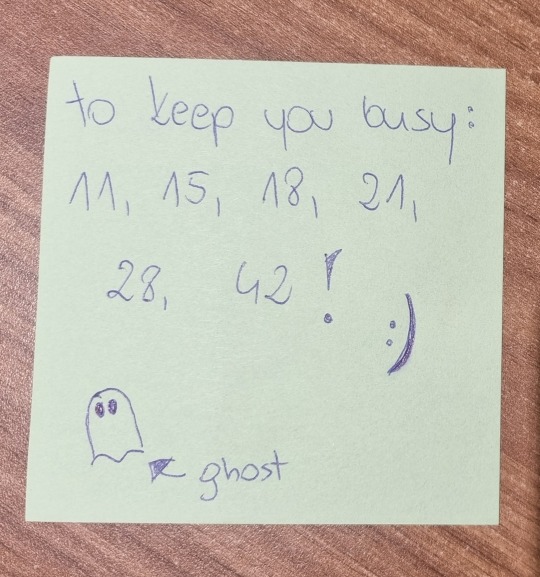 to keep you busy:
11, 15, 18, 21,
28, 42 !
:)
ghost